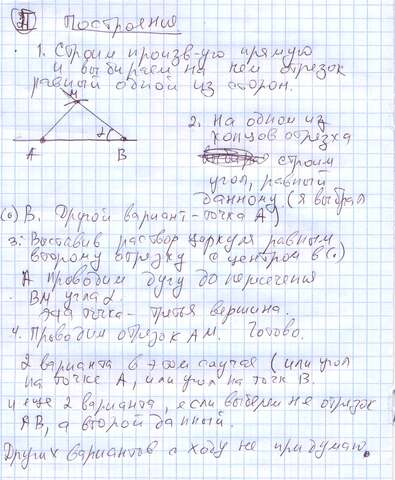 II Построения
1. Строим произв-ую прямую
и выбираем на ней отрезок
равный одной из сторон.
M
α
A B
2. На одном из
концов отрезка
строим
угол, равный
данному (я выбрал
(•) B. Другой вариант - точка A)
3. Выставив раствор циркуля равным
второму отрезку с центром в (•)
A проводим дугу до пересечения
BM угла α.
Эта точка - третья вершина.
4. Проводим отрезок AM. Готово.
2 варианта в этом случае (или угол
на точке A, или угол на точк B.
и еще 2 варианта, если выберем не отрезок
AB, а второй данный.
Других вариантов с ходу не придумаю.